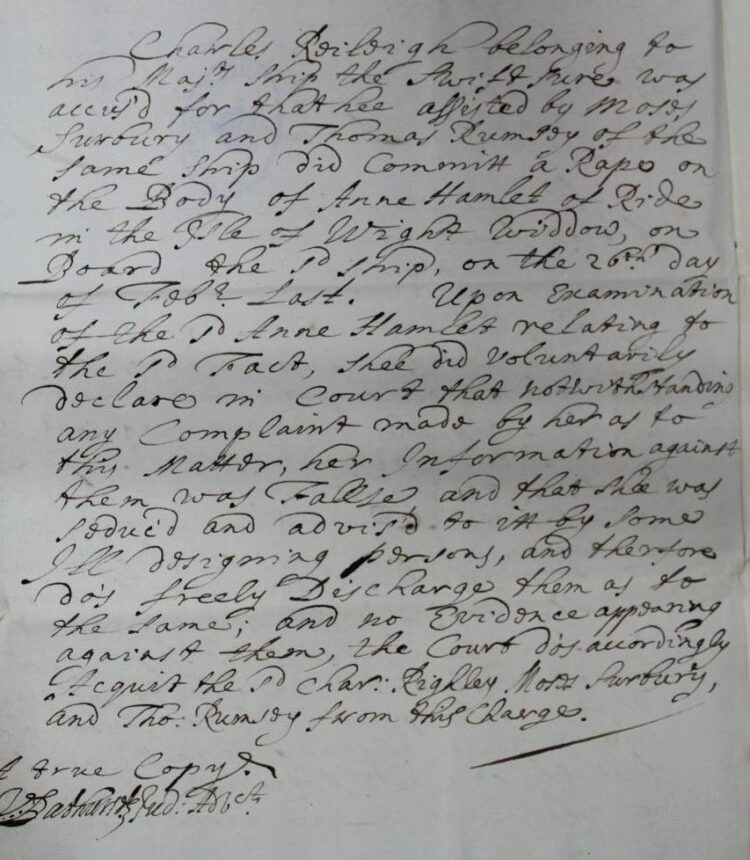 Charles Reileigh belonging to
his Maj.ts Ship the Swiftsure was
accus'd for that hee assisted by Moses
Surbury and Thomas Rumsey of the
same ship did Committ a Rape on
the Body of Anne Hamlet of Ride
in the Isle of Wight Widdow, on
Board the Sd Ship, on the 26th day
of Feb.r Last. Upon Examination
of the Sd Anne Hamlet relating to
the Sd Fact, Shee did voluntarily
declare in Court that notwithstanding
any Complaint made by her as to
this Matter, her Information against
them was Fallse and that She was
seduc'd and advis'd to itt by some
Ill designing persons, and therfore
do's freely Discharge them as to
the same; and no Evidence appearing
against them, the Court do's accordingly
Acquit the Sd Char: Righley Moses Surbury,
and Tho: Rumsey from this Charge.
A true Copy
Jud: Adv.t